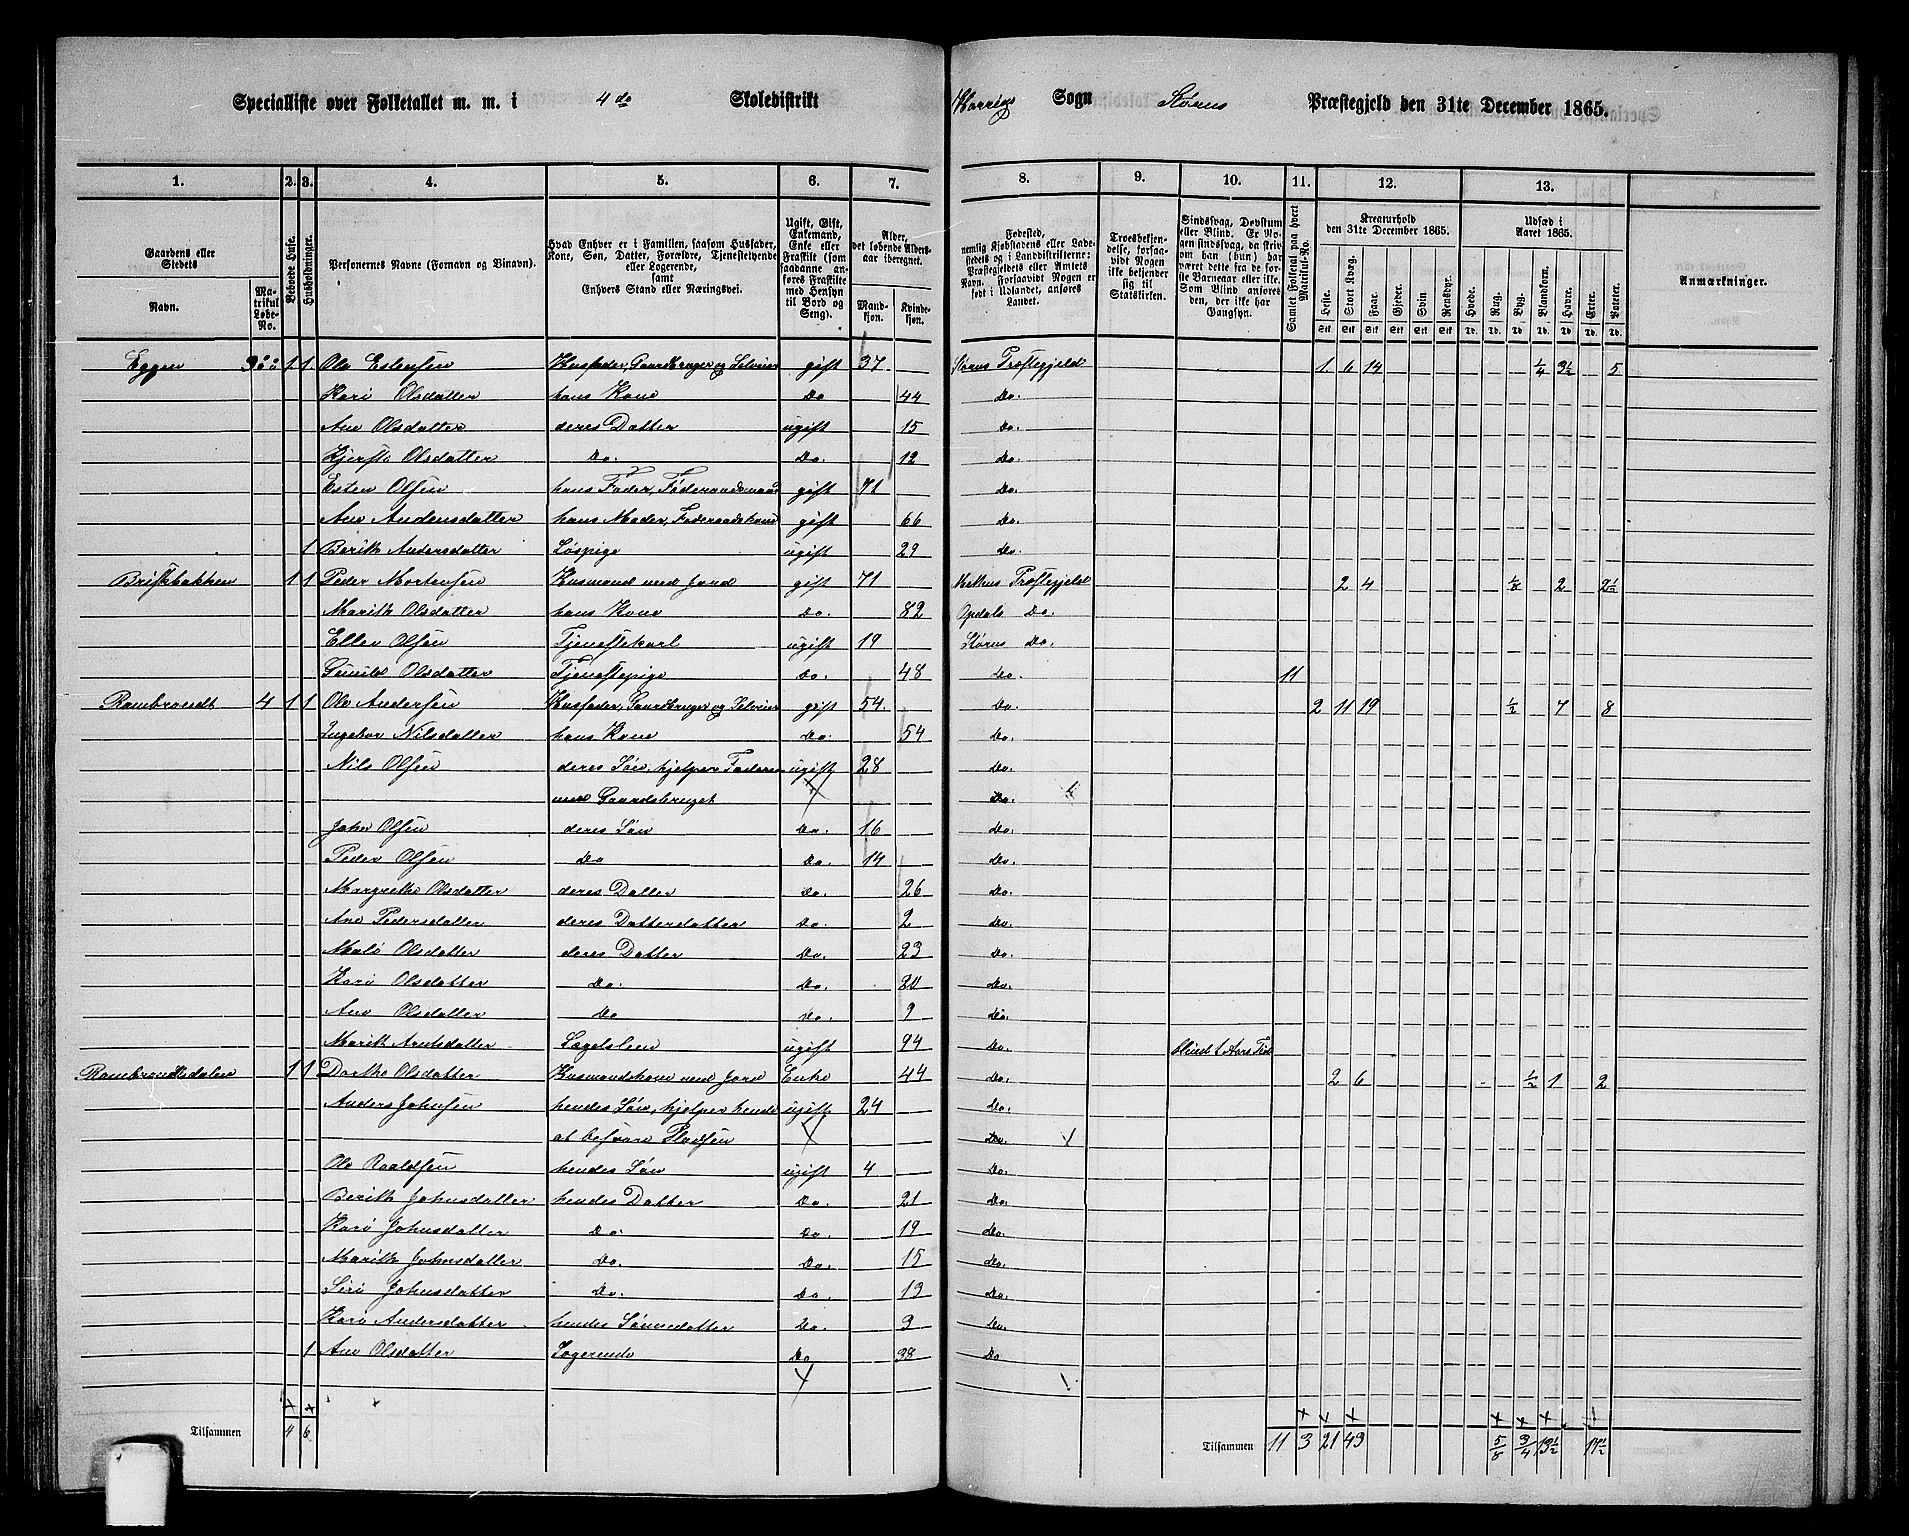 Specialliste over Folketallet m. m. i 4de Skoledistrikt Sogn Størens Præstegjeld den 31te December 1865.
1. 2. 3. 4. 5. 6. 7. 8. 9. 10. 11. 12. 13.
Gaardens eller Stedets
Navn.
Matrikul Løbe-No.
Beboede Huse.
Husholdninger.
Personernes Navne (Fornavn og Binavn).
Hvad Enhver er i Familien, saasom Husfader, Kone, Søn, Datter, Forældre, Tjenestetyende eller Logerende, samt Enhvers Stand eller Næringsvei.
Ugift, Gift, Enkemand, Enke eller Fraskilt (som saadanne anføres Fraskilte med Hensyn til Bord og Seng).
Alder, det løbende Aldersaar iberegnet.
Mandkjøn. Kvindekjøn.
Fødested, nemlig Kjøbstadens eller Ladestedets og i Landdistrikterne: Præstegjeldets eller Amtets Navn. Forsaavidt Nogen er født i Udlandet, anføres Landet.
Troesbekjendelse, forsaavidt Nogen ikke bekjender sig til Statskirken.
Sindssvag, Døvstum eller Blind. Er Nogen sindssvag, da skriv om han (hun) har været dette fra de første Barneaar eller ikke. Som Blind anføres den, der ikke har Gangsyn.
Samlet Folketal paa hvert Matrikul-No.
Kreaturhold den 31te December 1865.
Heste. Stort Kvæg. Faar. Gjeder. Svin. Rensdyr.
Udsæd i Aaret 1865.
Hvede. Rug. Byg. Blandkorn. Havre. Erter. Poteter.
Anmærkninger.
Stk. Stk. Stk. Stk. Stk. Stk. Td. Td. Td. Td. Td. Td. Td.
Eggen 1 1 Ole Estensen Husfader, Gaardbruger og Selveier gift 37 Størens Præstegjeld 1 6 14 1/4 3 1/2 5
Kari Olsdatter hans Kone Do 44 Do.
Ane Olsdatter deres Datter ugift 15 Do.
Kjersti Olsdatter Do. Do. 12 Do.
Esten Olsen hans Fader, Føderaadsmand gift 71 Do.
Ane Andersdatter hans Moder, Føderaadskone gift 66 Do.
1 Berith Andersdatter Løspige ugift 29 Do.
Briskbakken 1 1 Peder Mortensen Husmand med Jord gift 71 Præstegjeld 2 4 1/8 2 2 1/2
Marith Olsdatter hans Kone Do. 82 Opdals Do.
Ellev Olsen Tjenestekarl ugift 19 Størens Do.
Gunild Olsdatter Tjenestepige Do. 48 Do. 11
Rambraudt 4 1 1 Ole Andersen Husfader, Gaardbruger og Selveier gift 54 Do. 2 11 19 1/2 7 8
Ingebor Nilsdatter hans Kone Do. 54 Do.
Nils Olsen deres Søn, hjelper Faderen ugift 28 Do.
med Gaardsbruget Do.
John Olsen deres Søn Do. 16 Do.
Peder Olsen Do Do. 14 Do.
Margrethe Olsdatter deres Datter Do. 26 Do.
Ane Pedersdatter deres Datterdatter Do. 2 Do.
Mali Olsdatter deres Datter Do. 23 Do.
Kari Olsdatter Do. Do. 20 Do.
Ane Olsdatter Do Do. 9 Do.
Marith Arntsdatter Lægdslem ugift 94 Do.
Rambraudtsdalen 1 1 Dorthe Olsdatter Husmandskone med Jord Enke 44 Do. 2 6 1/2 1 2
Anders Johnsen hendes Søn, hjelper hende ugift 24 Do.
at besvare Pladsen Do.
Ole Roaldsen hendes Søn ugift 4 Do.
Berith Johnsdatter hendes Datter Do. 21 Do.
Kari Johnsdatter Do. Do. 19 Do.
Marith Johnsdatter Do. Do. 15 Do.
Siri Johnsdatter Do. Do. 13 Do.
Kari Andersdatter hendes Sønnedatter Do. 3 Do.
1 Ane Olsdatter Logerende Do 38 Do
Tilsammen 4 6 Tilsammen 11 3 21 43 5/8 3/4 13 1/2 17 1/2